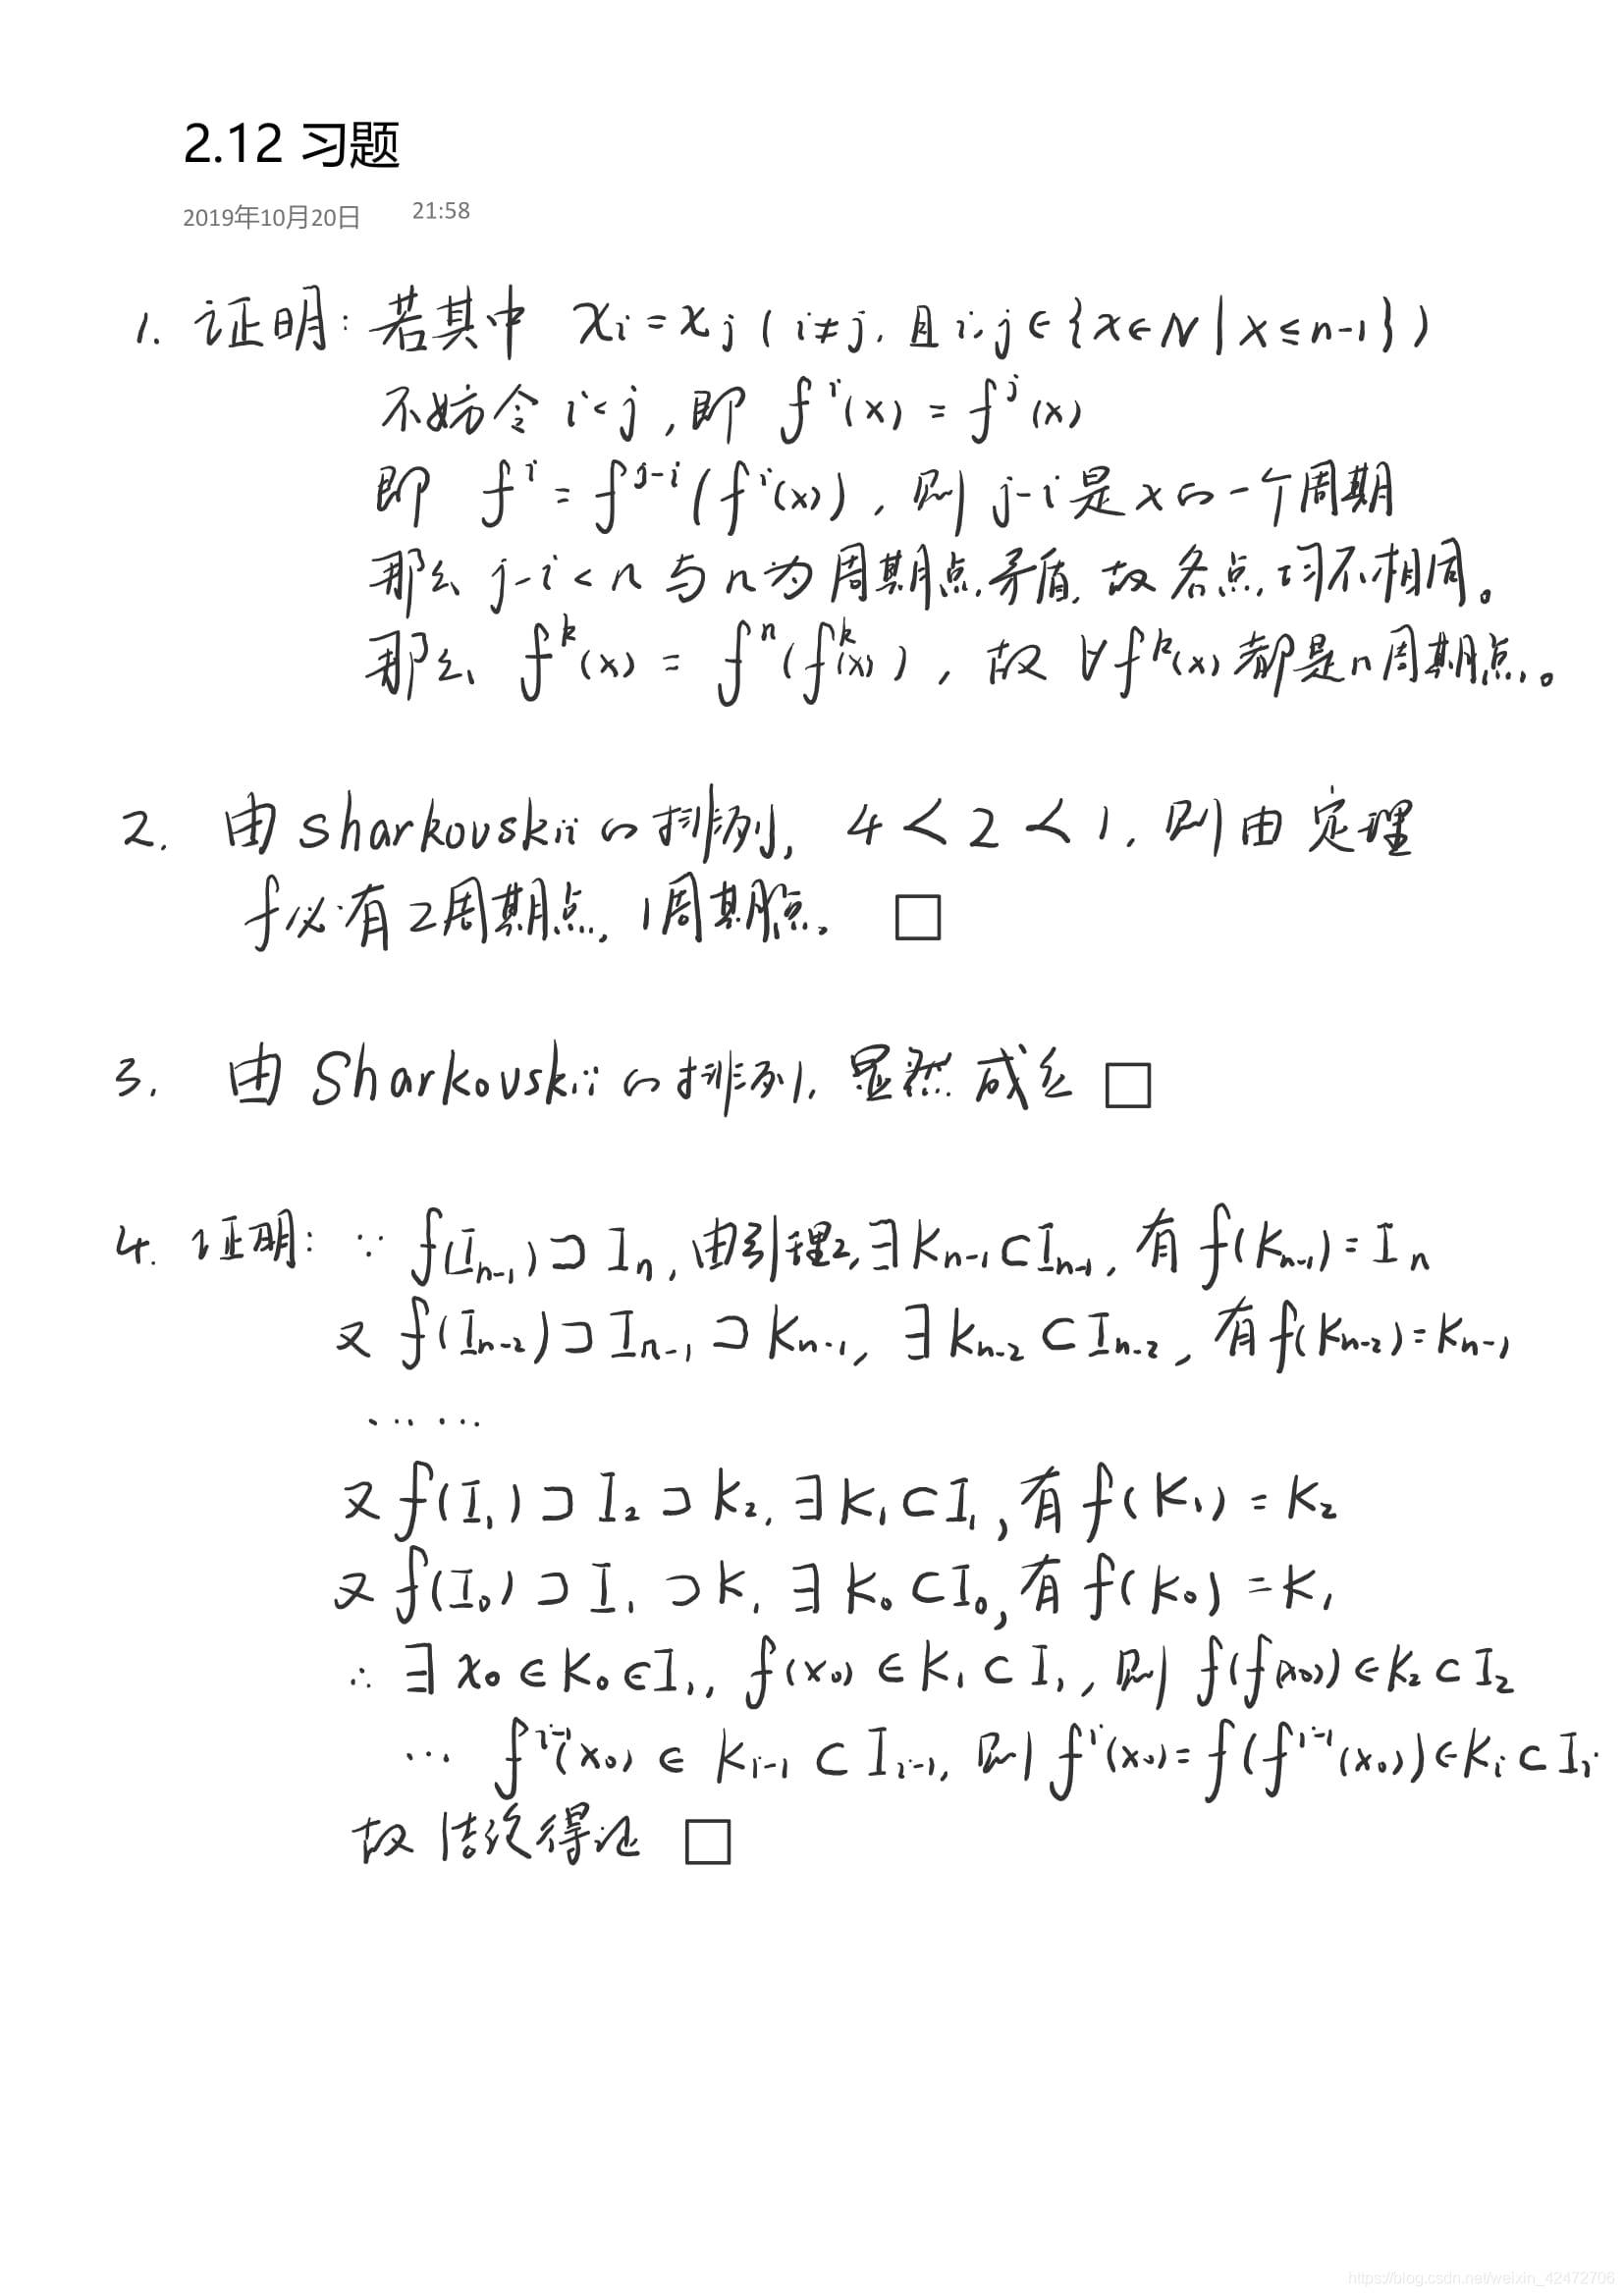 2.12 习题
2019年10月20日 21:58
1. 证明: 若其中 xᵢ = xⱼ ( i≠j, 且 i,j∈{x∈N | x≤n-1} )
不妨令 i<j, 即 fⁱ(x) = fʲ(x)
即 fⁱ = fʲ⁻ⁱ(fⁱ(x)), 则 j-i 是 x 的一个周期
那么 j-i < n 与 n 为周期点矛盾, 故各点均不相同。
那么 fᵏ(x) = fⁿ(fᵏ(x)), 故 ∀fᵏ(x) 都是 n 周期点。
2. 由 sharkovskii 的排列, 4 ≺ 2 ≺ 1, 则由定理
f 必有 2 周期点, 1 周期点. □
3. 由 Sharkovskii 的排列, 显然成立 □
4. 证明: ∵ f(Iₙ₋₁) ⊃ Iₙ, 由引理2, ∃Kₙ₋₁ ⊂ Iₙ₋₁, 有 f(Kₙ₋₁) = Iₙ
又 f(Iₙ₋₂) ⊃ Iₙ₋₁ ⊃ Kₙ₋₁, ∃Kₙ₋₂ ⊂ Iₙ₋₂, 有 f(Kₙ₋₂) = Kₙ₋₁
......
又 f(I₁) ⊃ I₂ ⊃ K₂, ∃K₁ ⊂ I₁, 有 f(K₁) = K₂
又 f(I₀) ⊃ I₁ ⊃ K₁, ∃K₀ ⊂ I₀, 有 f(K₀) = K₁
∴ ∃x₀ ∈ K₀ ∈ I₁, f(x₀) ∈ K₁ ⊂ I₁, 则 f(f(x₀)) ∈ K₂ ⊂ I₂
... fⁱ⁻¹(x₀) ∈ Kᵢ₋₁ ⊂ Iᵢ₋₁, 则 fⁱ(x₀) = f(fⁱ⁻¹(x₀)) ∈ Kᵢ ⊂ Iᵢ
故结论得证 □
https://blog.csdn.net/weixin_42472706